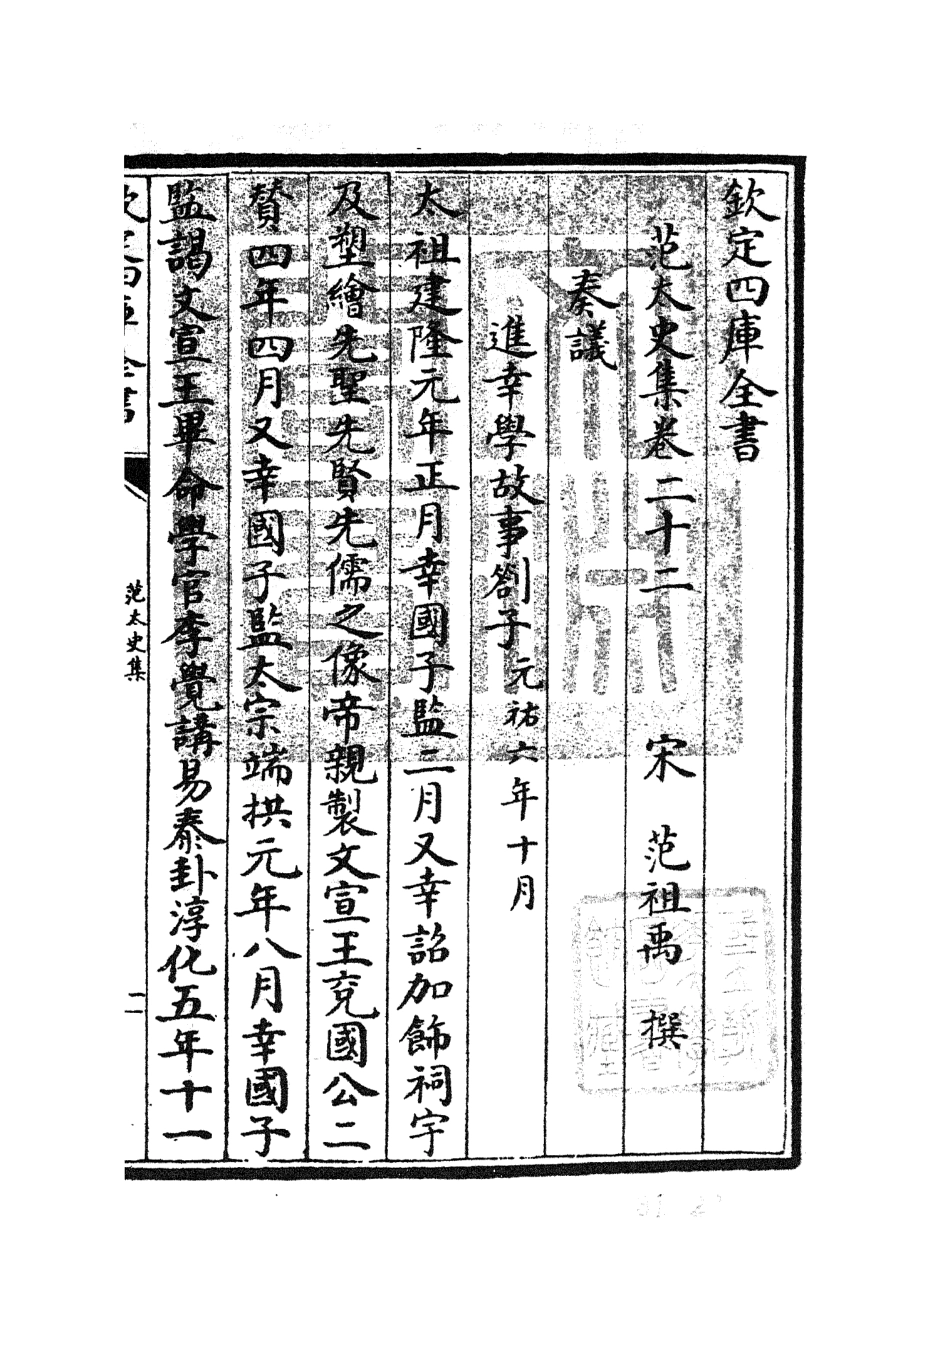 欽定四庫全書
范太史集卷二十二 宋 范祖禹 撰
奏議
進幸學故事劄子元祐六年十月
太祖建隆元年正月幸國子監二月又幸詔加飾祠宇
及塑繪先聖先賢先儒之像帝親製文宣王兖國公二
贊四年四月又幸國子監太宗端拱元年八月幸國子
監謁文宣王畢命學官李覺講易泰卦淳化五年十一
欽定四庫全書
范太史集
二